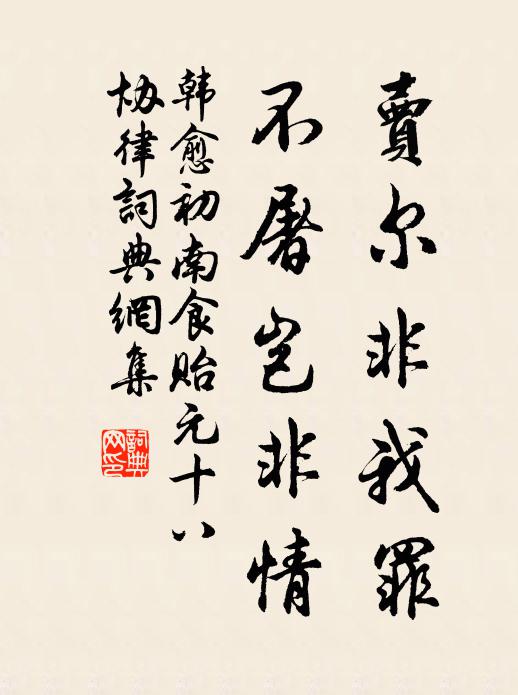 賣尔非我罪
不屠豈非情
韓愈初南食貽元十八
協律詞典網集
詞典
网印